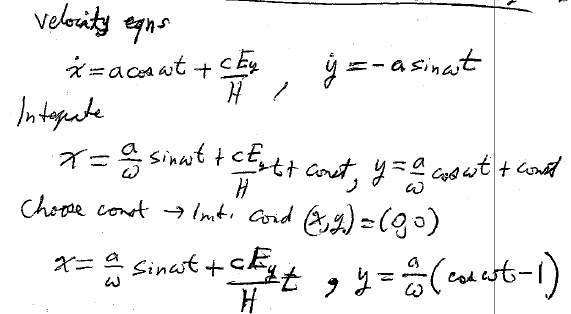 Velocity eqns
ẋ = a cos ωt + cE_y/H , ẏ = -a sin ωt
Integrate
x = a/ω sin ωt + cE_y/H t + const, y = a/ω cos ωt + const
Choose const → Init. Cord (x,y) = (0,0)
x = a/ω sin ωt + cE_y/H t , y = a/ω (cos ωt - 1)